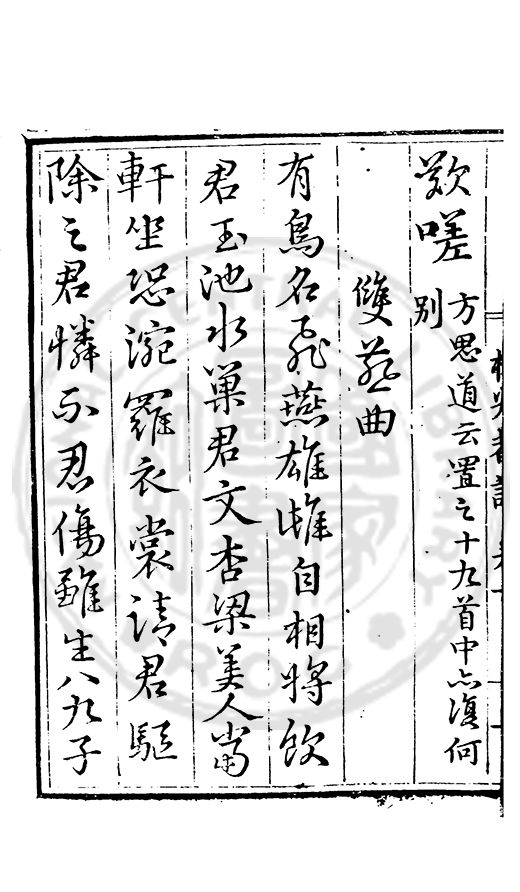 歎嗟
方思道云置之十九首中亦復何
别
雙燕曲
有鳥名飛燕雄雌自相將飲
君玉池水巢君文杏梁美人當
軒坐恐涴羅衣裳請君驅
除之君憐不忍傷雖生八九子